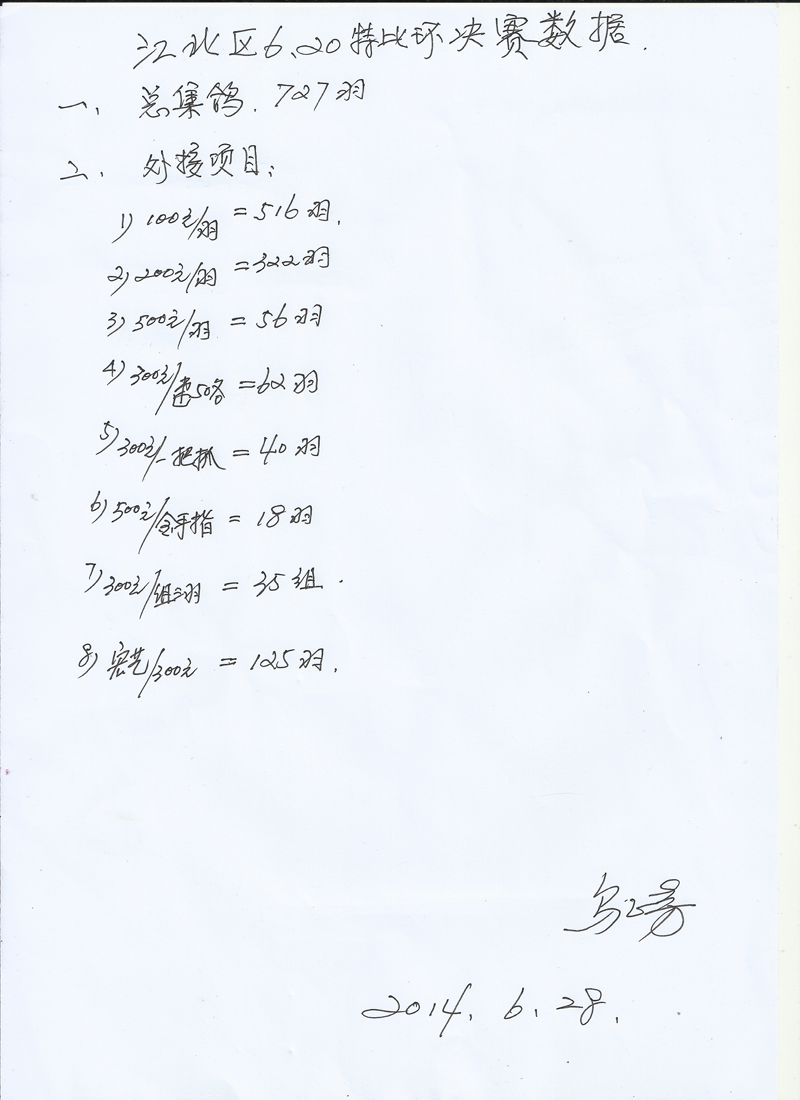 江北区6、20特比环决赛数据.
一、总集鸽.727羽
二、外接项目:
1) 100元/羽 = 516羽.
2) 200元/羽 = 322羽
3) 500元/羽 = 56羽
4) 300元/50名 = 62羽
5) 300元/一把抓 = 40羽
6) 500元/金手指 = 18羽
7) 300元/组三羽 = 35组.
8) 宏艺/300元 = 125羽.
2014.6.28.